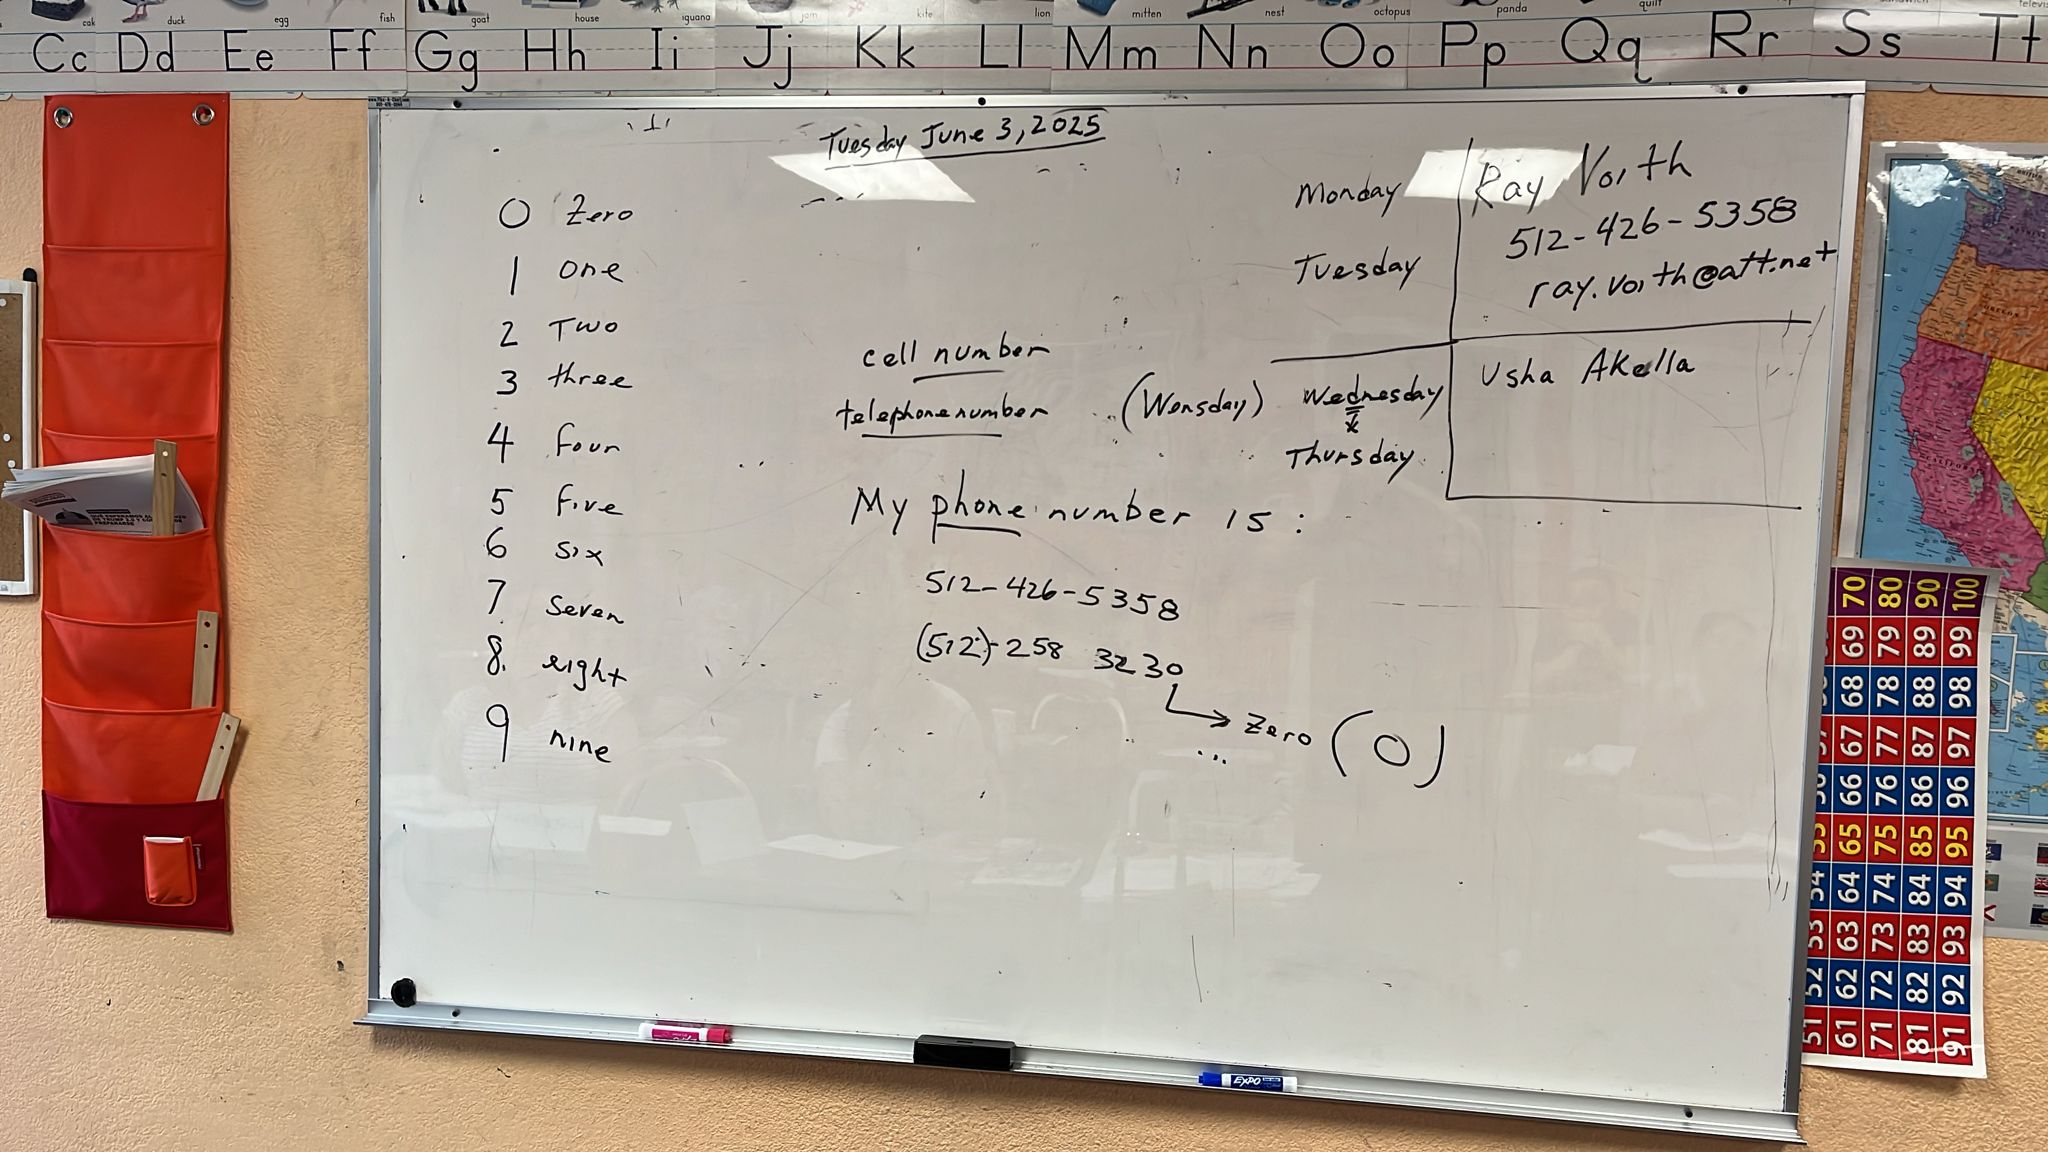 cak duck egg fish goat house iguana jam kite lion mitten nest octopus panda quilt
Cc Dd Ee Ff Gg Hh Ii Jj Kk Ll Mm Nn Oo Pp Qq Rr Ss Tt
Tuesday June 3, 2025
0 Zero
1 one
2 Two
3 three
4 four
5 five
6 six
7 seven
8. eight
9 nine
cell number
telephone number
My phone number is:
512-426-5358
(512)-258 3230
Zero (0)
...
Monday
Tuesday
(Wensday) Wednesday
Thursday
Ray Voith
512-426-5358
ray.voith@att.net
Usha Akella
EXPO
PACIFIC OCEAN
OREGON
CALIFORNIA
70 80 90 100
69 79 89 99
68 78 88 98
67 77 87 97
66 76 86 96
65 75 85 95
54 64 74 84 94
53 63 73 83 93
52 62 72 82 92
51 61 71 81 91